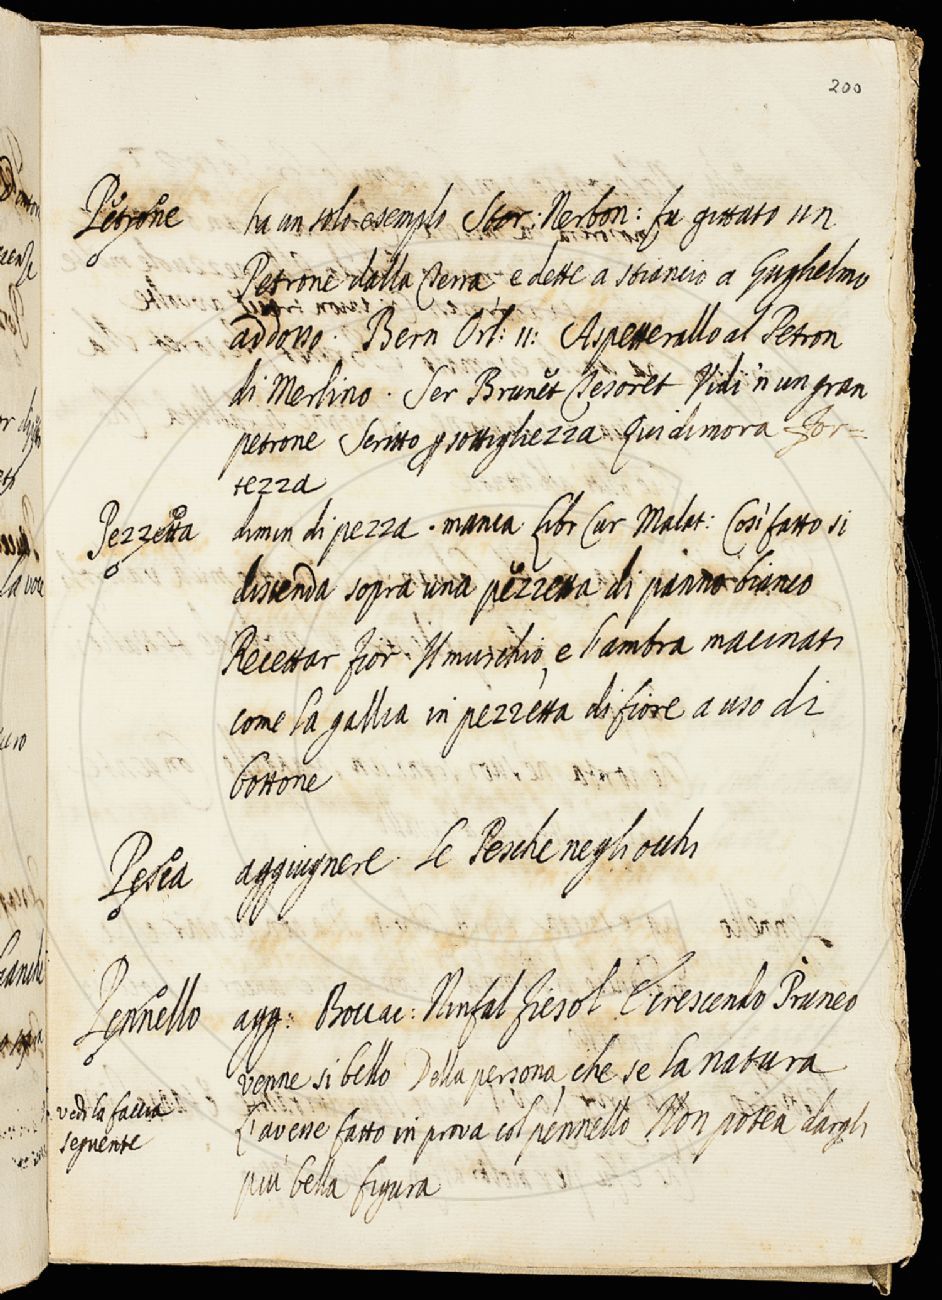 200
Petrone ha un solo esempio Stor: Nerbon: fu gittato un
Petrone dalla Terra e dette a stiancio a Guglielmo
addosso. Bern Orl: 11: Aspetterallo al Petron
di Merlino. Ser Brunet Tesoret Vidi 'n un gran
petrone Scritto p sottigliezza Qui dimora For=
tezza
Pezzetta dimin di pezza. manca Libr Cur Malat: Così fatto si
distenda sopra una pezzetta di panno bianco
Ricettar Fior. Il muschio, e l'ambra macinati
come la gallia in pezzetta di fiore a uso di
bottone
Pesca aggiugnere. Le Pesche negli occhi
Pennello agg: Boccac: Ninfal Fiesol E crescendo Pruneo
venne si bello Della persona, che se la natura
vedi la faccia
seguente
L'avesse fatto in prova col pennello Non potea dargli
più bella figura